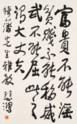 富貴不能淫
貧賤不能移威
武不能屈此之
謂大丈夫
先生雅教